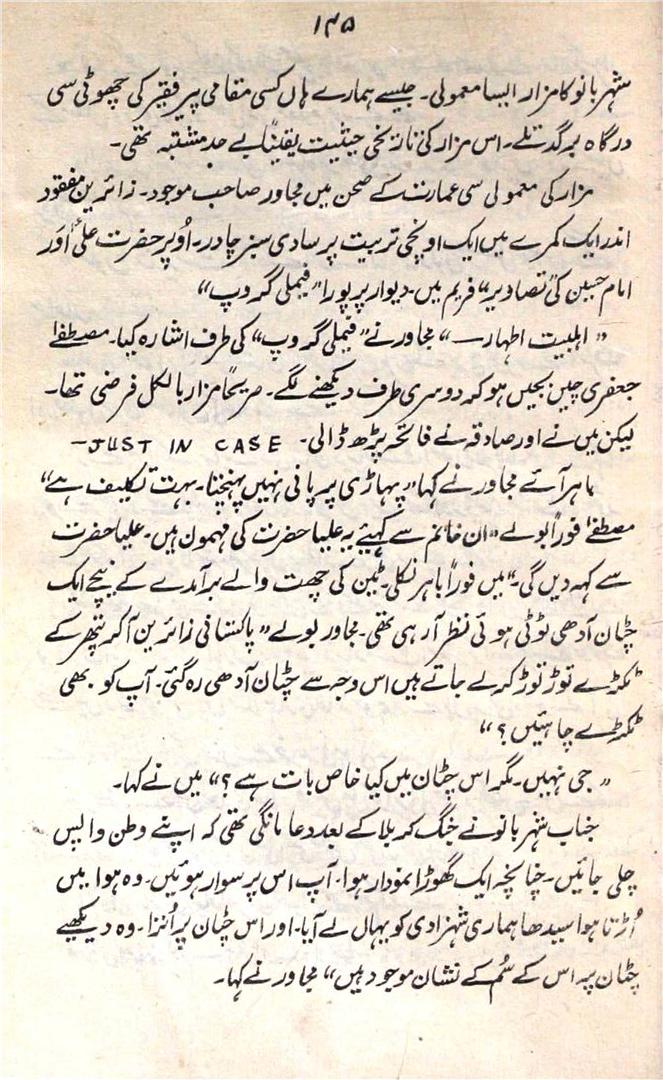 ۱۴۵
شہر بانو کا مزار ایسا معمولی۔ جیسے ہمارے ہاں کسی مقامی پیر فقیر کی چھوٹی سی
درگاہ برگد تلے۔ اس مزار کی تاریخی حیثیت یقیناً بے حد مشتبہ تھی۔
مزار کی معمولی سی عمارت کے صحن میں مجاور صاحب موجود۔ زائرین مفقود
اندر ایک کمرے میں ایک اونچی تربیت پر سادی سبز چادر۔ اُوپر حضرت علیؑ اور
امام حسین کی "تصادیر" فریم میں۔ دیوار پر پورا "فیملی گروپ"
"اہلبیت اطہار—" مجاور نے "فیملی گروپ" کی طرف اشارہ کیا۔ مصطفےٰ
جعفری چیں بجبیں ہو کر دوسری طرف دیکھنے لگے۔ صریحاً مزار بالکل فرضی تھا۔
لیکن میں نے اور صادقہ نے فاتحہ پڑھ ڈالی۔ JUST IN CASE —
باہر آئے مجاور نے کہا "پہاڑی پر پانی نہیں پہنچتا۔ بہت تکلیف ہے"
مصطفےٰ فوراً بولے "ان خانم سے کہیئے یہ علیا حضرت کی مہمان ہیں۔ علیا حضرت
سے کہہ دیں گی۔" میں فوراً باہر نکلی۔ ٹین کی چھت والے برآمدے کے نیچے ایک
چٹان آدھی ٹوٹی ہوئی نظر آ رہی تھی۔ مجاور بولے "پاکستانی زائرین آ کر پتھر کے
ٹکڑے توڑ توڑ کر لے جاتے ہیں اس وجہ سے چٹان آدھی رہ گئی۔ آپ کو بھی
ٹکڑے چاہئیں؟"
"جی نہیں۔ مگر اس چٹان میں کیا خاص بات ہے؟" میں نے کہا۔
جناب شہر بانو نے جنگ کربلا کے بعد دعا مانگی تھی کہ اپنے وطن واپس
چلی جائیں۔ چنانچہ ایک گھوڑا نمودار ہوا۔ آپ اس پر سوار ہوئیں۔ وہ ہوا میں
اُڑتا ہوا سیدھا ہماری شہزادی کو یہاں لے آیا۔ اور اس چٹان پر اُترا۔ وہ دیکھیے
چٹان پہ اس کے سُم کے نشان موجود ہیں" مجاور نے کہا۔